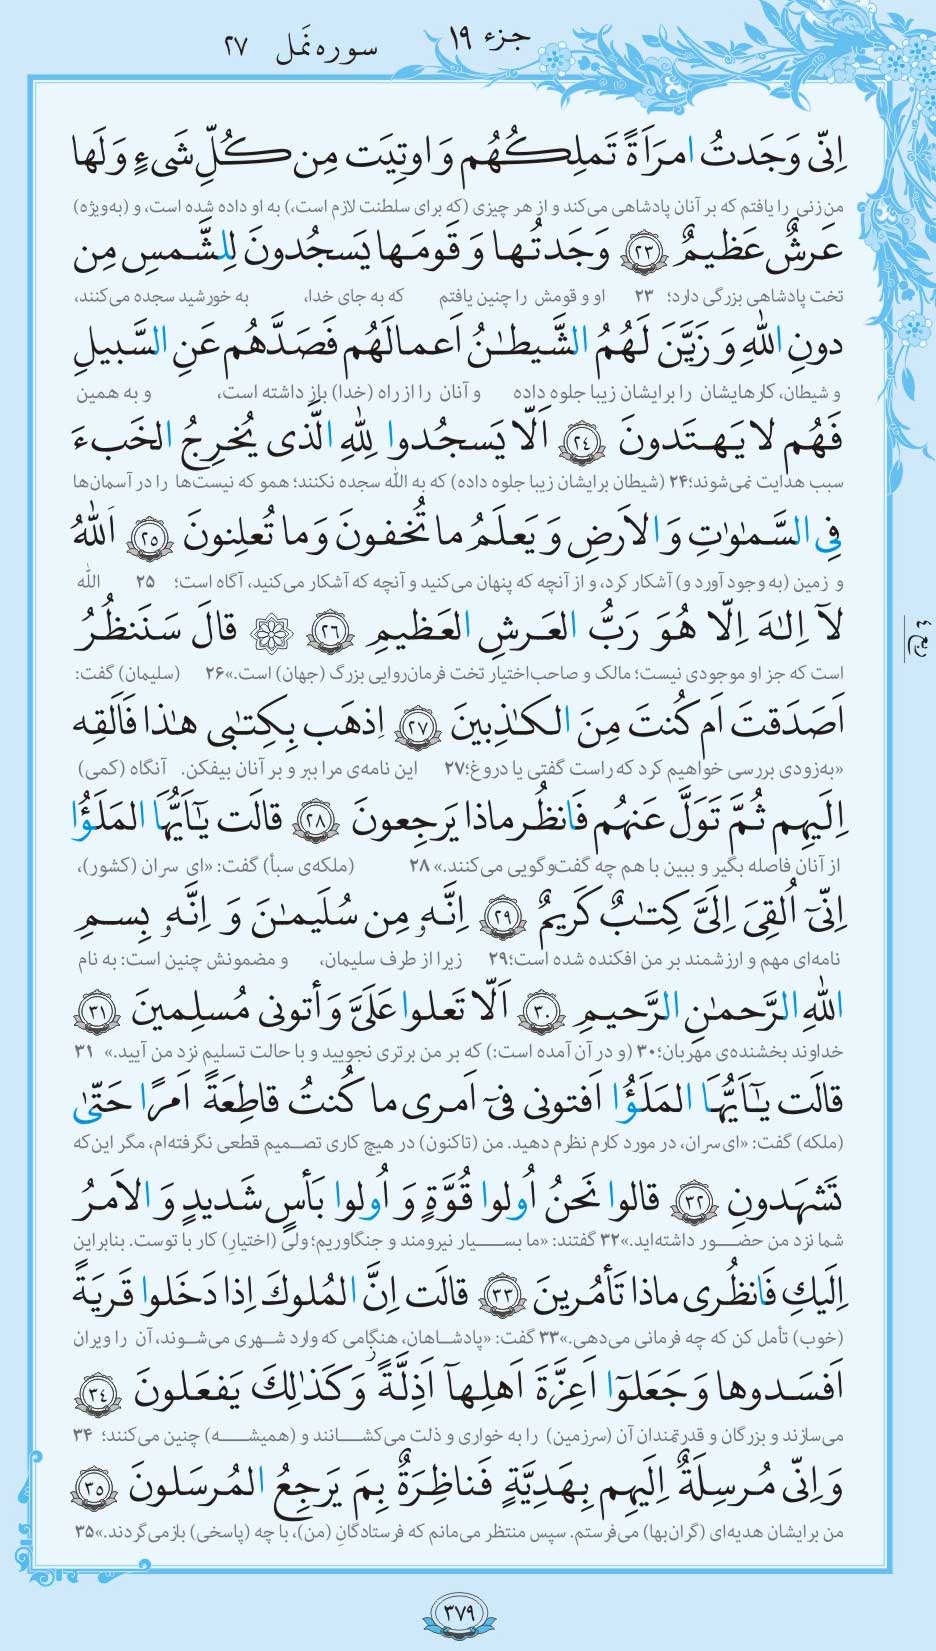 جزء ۱۹
سوره نَمل ۲۷
اِنّی وَجَدتُ امرَاَةً تَملِکُهُم وَ اوتِیَت مِن کُلِّ شَیءٍ وَ لَها
من زنی را یافتم که بر آنان پادشاهی می‌کند و از هر چیزی (که برای سلطنت لازم است،) به او داده شده است، و (به‌ویژه)
عَرشٌ عَظیمٌ ﴿۲۳﴾ وَجَدتُها وَ قَومَها یَسجُدونَ لِلشَّمسِ مِن
تخت پادشاهی بزرگی دارد؛ ۲۳ او و قومش را چنین یافتم که به جای خدا، به خورشید سجده می‌کنند،
دونِ اللّٰهِ وَ زَیَّنَ لَهُمُ الشَّیطـٰنُ اَعمالَهُم فَصَدَّهُم عَنِ السَّبیلِ
و شیطان، کارهایشان را برایشان زیبا جلوه داده و آنان را از راه (خدا) باز داشته است، و به همین
فَهُم لا یَهتَدونَ ﴿۲۴﴾ اَلّا یَسجُدوا لِلّٰهِ الَّذی یُخرِجُ الخَبءَ
سبب هدایت نمی‌شوند؛۲۴ (شیطان برایشان زیبا جلوه داده) که به الله سجده نکنند؛ همو که نیست‌ها را در آسمان‌ها
فِی السَّمـٰوٰتِ وَ الاَرضِ وَ یَعلَمُ ما تُخفونَ وَ ما تُعلِنونَ ﴿۲۵﴾ اَللّٰهُ
و زمین (به وجود آورد و) آشکار کرد، و از آنچه که پنهان می‌کنید و آنچه که آشکار می‌کنید، آگاه است؛ ۲۵ الله
لاۤ اِلـٰهَ اِلّا هُوَ رَبُّ العَرشِ العَظیمِ ﴿۲۶﴾ ۞ قالَ سَنَنظُرُ
است که جز او موجودی نیست؛ مالک و صاحب‌اختیار تخت فرمان‌روایی بزرگ (جهان) است.» ۲۶ (سلیمان) گفت:
ربع ٤
اَصَدَقتَ اَم کُنتَ مِنَ الکـٰذِبینَ ﴿۲۷﴾ اِذهَب بِکِتـٰبی هـٰذا فَاَلقِه
«به‌زودی بررسی خواهیم کرد که راست گفتی یا دروغ؛۲۷ این نامه‌ی مرا ببر و بر آنان بیفکن. آنگاه (کمی)
اِلَیهِم ثُمَّ تَوَلَّ عَنهُم فَانظُر ماذا یَرجِعونَ ﴿۲۸﴾ قالَت یـٰۤاَیُّهَا المَلَؤُا
از آنان فاصله بگیر و ببین با هم چه گفت‌وگویی می‌کنند.» ۲۸ (ملکه‌ی سبأ) گفت: «ای سران (کشور)،
اِنّیۤ اُلقِیَ اِلَیَّ کِتـٰبٌ کَریمٌ ﴿۲۹﴾ اِنَّهٗ مِن سُلَیمـٰنَ وَ اِنَّهٗ بِسمِ
نامه‌ای مهم و ارزشمند بر من افکنده شده است؛۲۹ زیرا از طرف سلیمان، و مضمونش چنین است: به نام
اللّٰهِ الرَّحمـٰنِ الرَّحیمِ ﴿۳۰﴾ اَلّا تَعلوا عَلَیَّ وَ أتونی مُسلِمینَ ﴿۳۱﴾
خداوند بخشنده‌ی مهربان؛۳۰ (و در آن آمده است:) که بر من برتری نجویید و با حالت تسلیم نزد من آیید.» ۳۱
قالَت یـٰۤاَیُّهَا المَلَؤُا اَفتونی فیۤ اَمری ما کُنتُ قاطِعَةً اَمرًا حَتّیٰ
(ملکه) گفت: «ای سران، در مورد کارم نظرم دهید. من (تاکنون) در هیچ کاری تصمیم قطعی نگرفته‌ام، مگر این‌که
تَشهَدونِ ﴿۳۲﴾ قالوا نَحنُ اُولوا قُوَّةٍ وَ اُولوا بَأسٍ شَدیدٍ وَ الاَمرُ
شما نزد من حضور داشته‌اید.»۳۲ گفتند: «ما بسیار نیرومند و جنگاوریم؛ ولی (اختیارِ) کار با توست. بنابراین
اِلَیکِ فَانظُری ماذا تَأمُرینَ ﴿۳۳﴾ قالَت اِنَّ المُلوکَ اِذا دَخَلوا قَریَةً
(خوب) تأمل کن که چه فرمانی می‌دهی.»۳۳ گفت: «پادشاهان، هنگامی که وارد شهری می‌شوند، آن را ویران
اَفسَدوها وَ جَعَلوۤا اَعِزَّةَ اَهلِهاۤ اَذِلَّةً ز وَ کَذٰلِکَ یَفعَلونَ ﴿۳۴﴾
می‌سازند و بزرگان و قدرتمندان آن (سرزمین) را به خواری و ذلت می‌کشانند و (همیشه) چنین می‌کنند؛ ۳۴
وَ اِنّی مُرسِلَةٌ اِلَیهِم بِهَدِیَّةٍ فَناظِرَةٌ بِمَ یَرجِعُ المُرسَلونَ ﴿۳۵﴾
من برایشان هدیه‌ای (گران‌بها) می‌فرستم. سپس منتظر می‌مانم که فرستادگانِ (من)، با چه (پاسخی) بازمی‌گردند.»۳۵
۳۷۹